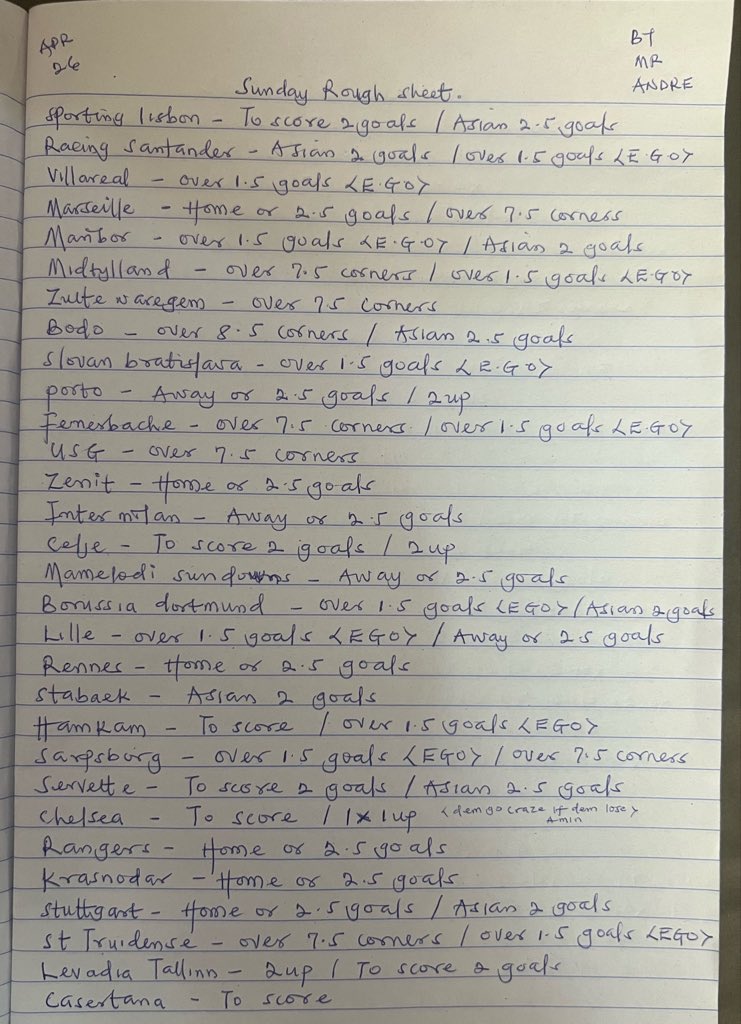 APR
26
BY
MR
ANDRE
Sunday Rough sheet.
Sporting lisbon - To score 2 goals / Asian 2.5 goals
Racing Santander - Asian 2 goals / over 1.5 goals <E.GO>
Villareal - over 1.5 goals <E.GO>
Marseille - Home or 2.5 goals / over 7.5 corners
Maribor - over 1.5 goals <E.G.O> / Asian 2 goals
Midtylland - over 7.5 corners / over 1.5 goals <E.GO>
Zulte waregem - over 7.5 corners
Bodo - over 8.5 corners / Asian 2.5 goals
Slovan bratislava - over 1.5 goals <E.GO>
porto - Away or 2.5 goals / 2up
Fenerbache - over 7.5 corners / over 1.5 goals <E.GO>
USG - over 7.5 corners
Zenit - Home or 2.5 goals
Inter milan - Away or 2.5 goals
Celje - To score 2 goals / 2up
Mamelodi sundowns - Away or 2.5 goals
Borussia dortmund - over 1.5 goals <EGO> / Asian 2 goals
Lille - over 1.5 goals <EGO> / Away or 2.5 goals
Rennes - Home or 2.5 goals
Stabaek - Asian 2 goals
Hamkam - To score / over 1.5 goals <EGO>
Sarpsborg - over 1.5 goals <EGO> / over 7.5 corners
Servette - To score 2 goals / Asian 2.5 goals
Chelsea - To score / 1x 1up <dem go craze if dem lose>
Amin
Rangers - Home or 2.5 goals
Krasnodar - Home or 2.5 goals
Stuttgart - Home or 2.5 goals / Asian 2 goals
St Truidense - over 7.5 corners / over 1.5 goals <EGO>
Levadia Tallinn - 2up / To score 2 goals
Casertana - To score